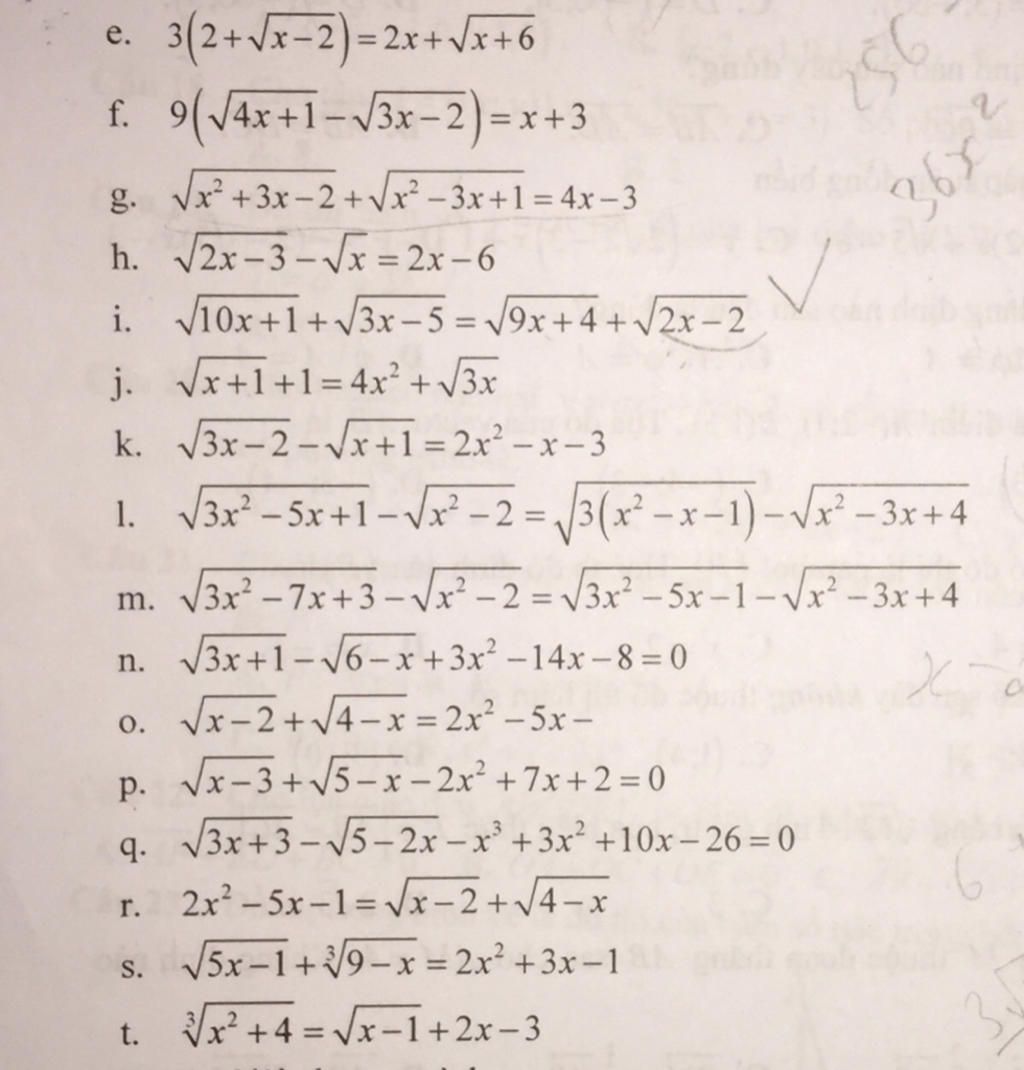 e. 3(2+√(x−2))=2x+√(x+6)
f. 9(√(4x+1)−√(3x−2))=x+3
g. √(x²+3x−2)+√(x²−3x+1)=4x−3
h. √(2x−3)−√x=2x−6
i. √(10x+1)+√(3x−5)=√(9x+4)+√(2x−2)
j. √(x+1)+1=4x²+√(3x)
k. √(3x−2)−√(x+1)=2x²−x−3
l. √(3x²−5x+1)−√(x²−2)=√(3(x²−x−1))−√(x²−3x+4)
m. √(3x²−7x+3)−√(x²−2)=√(3x²−5x−1)−√(x²−3x+4)
n. √(3x+1)−√(6−x)+3x²−14x−8=0
o. √(x−2)+√(4−x)=2x²−5x−
p. √(x−3)+√(5−x)−2x²+7x+2=0
q. √(3x+3)−√(5−2x)−x³+3x²+10x−26=0
r. 2x²−5x−1=√(x−2)+√(4−x)
s. √(5x−1)+∛(9−x)=2x²+3x−1
t. ∛(x²+4)=√(x−1)+2x−3